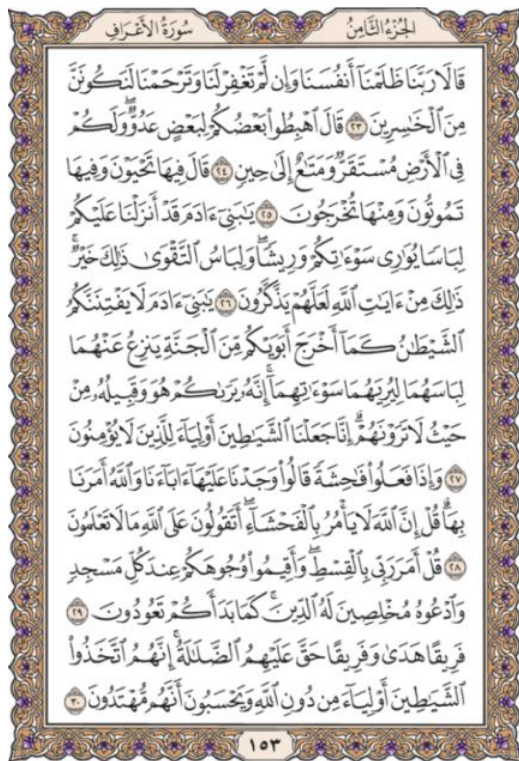 الجزء الثامن
سورة الأعراف
قَالَا رَبَّنَا ظَلَمْنَا أَنفُسَنَا وَإِن لَّمْ تَغْفِرْ لَنَا وَتَرْحَمْنَا لَنَكُونَنَّ
مِنَ ٱلْخَٰسِرِينَ ٢٣ قَالَ ٱهْبِطُوا۟ بَعْضُكُمْ لِبَعْضٍ عَدُوٌّ ۖ وَلَكُمْ
فِى ٱلْأَرْضِ مُسْتَقَرٌّ وَمَتَٰعٌ إِلَىٰ حِينٍ ٢٤ قَالَ فِيهَا تَحْيَوْنَ وَفِيهَا
تَمُوتُونَ وَمِنْهَا تُخْرَجُونَ ٢٥ يَٰبَنِىٓ ءَادَمَ قَدْ أَنزَلْنَا عَلَيْكُمْ
لِبَاسًا يُوَٰرِى سَوْءَٰتِكُمْ وَرِيشًا ۖ وَلِبَاسُ ٱلتَّقْوَىٰ ذَٰلِكَ خَيْرٌ ۚ
ذَٰلِكَ مِنْ ءَايَٰتِ ٱللَّهِ لَعَلَّهُمْ يَذَّكَّرُونَ ٢٦ يَٰبَنِىٓ ءَادَمَ لَا يَفْتِنَنَّكُمُ
ٱلشَّيْطَٰنُ كَمَآ أَخْرَجَ أَبَوَيْكُم مِّنَ ٱلْجَنَّةِ يَنزِعُ عَنْهُمَا
لِبَاسَهُمَا لِيُرِيَهُمَا سَوْءَٰتِهِمَآ ۗ إِنَّهُۥ يَرَىٰكُمْ هُوَ وَقَبِيلُهُۥ مِنْ
حَيْثُ لَا تَرَوْنَهُمْ ۗ إِنَّا جَعَلْنَا ٱلشَّيَٰطِينَ أَوْلِيَآءَ لِلَّذِينَ لَا يُؤْمِنُونَ
٢٧ وَإِذَا فَعَلُوا۟ فَٰحِشَةً قَالُوا۟ وَجَدْنَا عَلَيْهَآ ءَابَآءَنَا وَٱللَّهُ أَمَرَنَا
بِهَا ۗ قُلْ إِنَّ ٱللَّهَ لَا يَأْمُرُ بِٱلْفَحْشَآءِ ۖ أَتَقُولُونَ عَلَى ٱللَّهِ مَا لَا تَعْلَمُونَ
٢٨ قُلْ أَمَرَ رَبِّى بِٱلْقِسْطِ ۖ وَأَقِيمُوا۟ وُجُوهَكُمْ عِندَ كُلِّ مَسْجِدٍ
وَٱدْعُوهُ مُخْلِصِينَ لَهُ ٱلدِّينَ ۚ كَمَا بَدَأَكُمْ تَعُودُونَ ٢٩
فَرِيقًا هَدَىٰ وَفَرِيقًا حَقَّ عَلَيْهِمُ ٱلضَّلَٰلَةُ ۗ إِنَّهُمُ ٱتَّخَذُوا۟
ٱلشَّيَٰطِينَ أَوْلِيَآءَ مِن دُونِ ٱللَّهِ وَيَحْسَبُونَ أَنَّهُم مُّهْتَدُونَ ٣٠
١٥٣